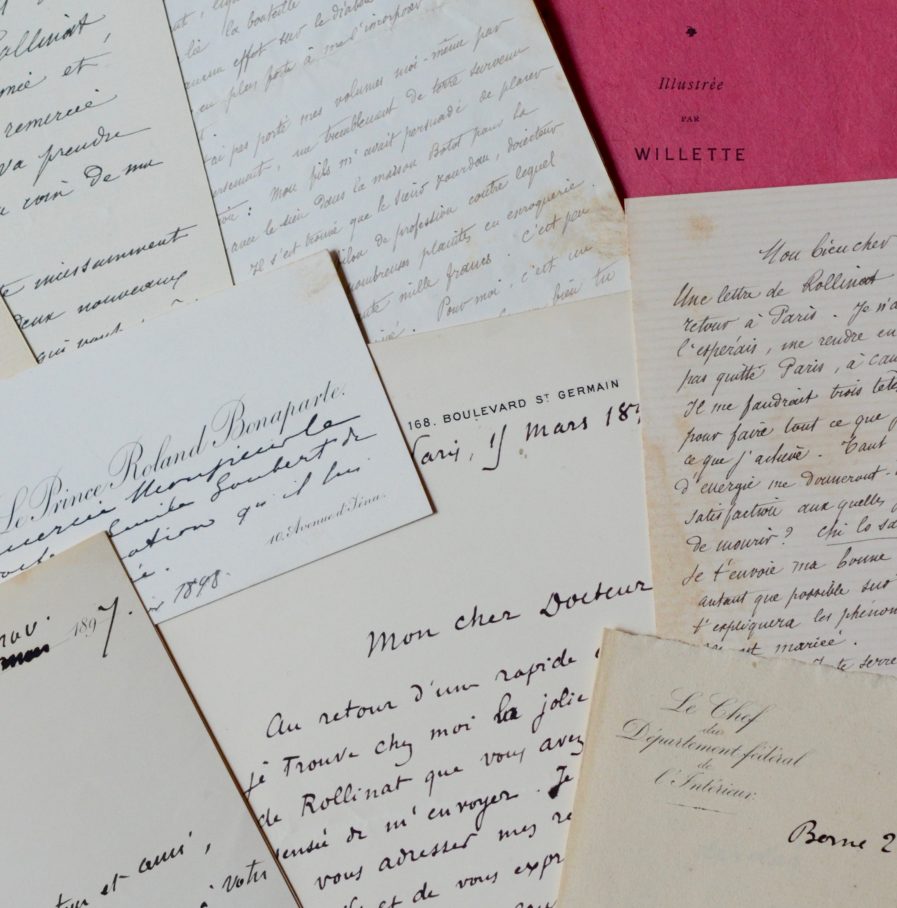 Rollinat
et,
remercié
va prendre
de ma
incessamment
nouveaux
la bouteille
effet sur le
en plus forte à me l'incorporer
pas porté mes volumes moi-même par
un tremblement de terre survenu
Mon fils m'avait persuadé de placer
avec le sien dans la maison Botot pour la
Il s'est trouvé que le sieur Jourdan, directeur
de profession contre lequel
nombreuses plaintes en escroquerie
mille francs. C'est peu
Pour moi, c'est un
bien tu
Illustrée
PAR
WILLETTE
Mon bien cher
Une lettre de Rollinat
retour à Paris. Je n'a
l'espérais, me rendre en
pas quitté Paris, à cau
Il me faudrait trois tête
pour faire tout ce que
ce que j'achève. Tant
d'énergie me donneront-
satisfaction aux quelles
de mourir? Chi lo sa
Je t'envoie ma bonne
autant que possible sur
t'expliquera les phénom
est mariée.
te serre
Le Prince Roland Bonaparte.
Emile Goubert de
qu'il lui
10, Avenue d'Iéna.
1898.
168. BOULEVARD ST GERMAIN
Paris, 15 Mars 189
Mon cher Docteur
Au retour d'un rapide
je trouve chez moi la jolie
de Rollinat que vous avez
pensée de m'envoyer. Je
vous adresser mes re
et de vous expr
1897.
et ami,
votre
Le Chef
du
Département fédéral
de
l'Intérieur.
Berne 2